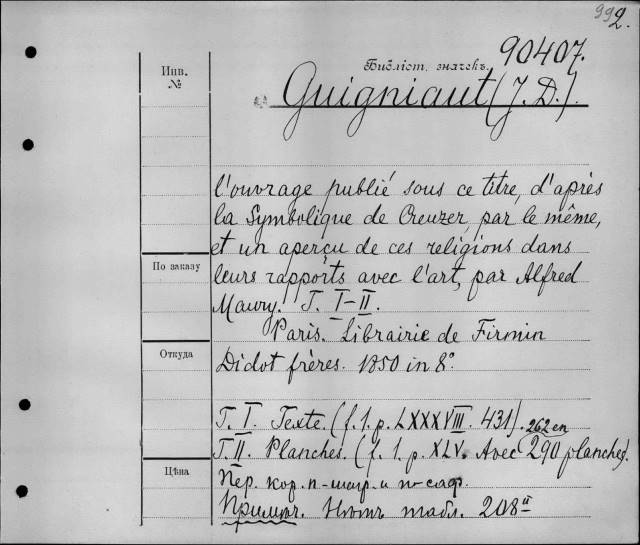 992.
90407.
Библіот. значекъ.
Инв.
№
Guigniaut (J. D.).
l'ouvrage publié sous ce titre, d'après
la Symbolique de Creuzer, par le même,
et un aperçu de ces religions dans
По заказу
leurs rapports avec l'art, par Alfred
Maury. T. I-II.
Paris. Librairie de Firmin
Откуда
Didot frères. 1850 in 8°
T. I. Texte. (f. 1. p. LXXXVIII. 431).
262 en
T. II. Planches. (f. 1. p. XLV. Avec 290 planches).
Цѣна
Пер. кор. п-шагр. и
Примѣч. Нѣтъ табл. 208